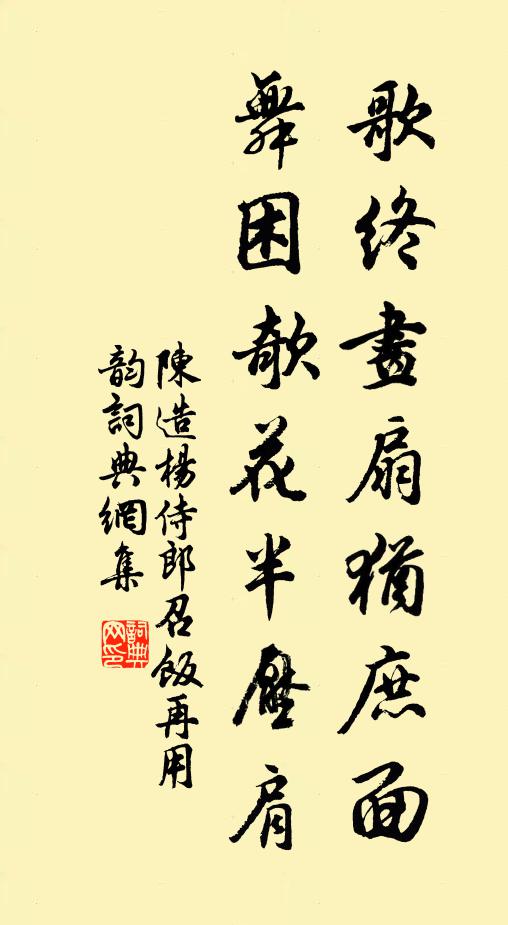 歌終畫扇猶庶面
舞困欹花半壓肩
陳造楊侍郎召飯再用
韵詞典網集
詞典網印